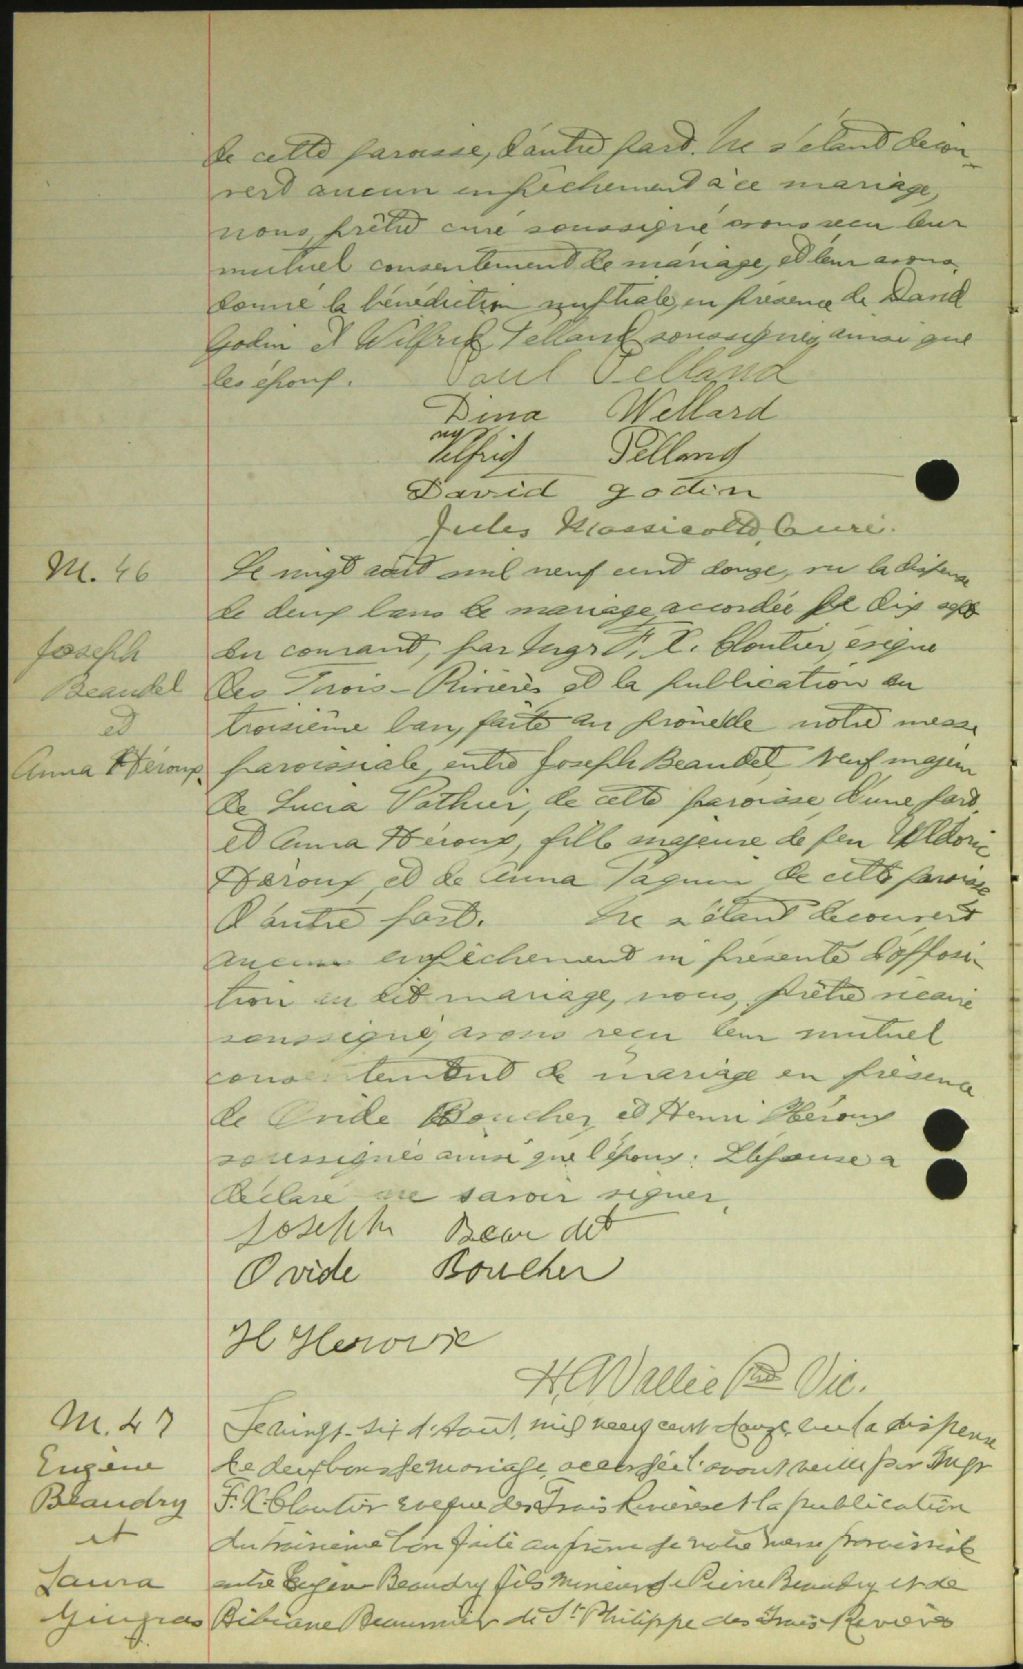 de cette paroisse, d'autre part. Ne s'étant décou-
vert aucun empêchement à ce mariage,
nous, prêtre curé soussigné avons reçu leur
mutuel consentement de mariage, et leur avons
donné la bénédiction nuptiale, en présence de David
Godin et Wilfrid Pelland soussignés, ainsi que
les époux. Paul Pelland
Dina Wellard
Wilfrid Pelland
David Godin
Jules Massicotte, Curé.
M. 46
Joseph
Beaudet
et
Anna Héroux
Le vingt août mil neuf cent douze, vu la dispense
de deux bans de mariage accordée le dix sept
du courant, par Mgr F. X. Cloutier, évêque
des Trois-Rivières et la publication du
troisième ban, faite au prône de notre messe
paroissiale, entre Joseph Beaudet, veuf majeur
de Lucia Pothier, de cette paroisse d'une part,
et Anna Héroux, fille majeure de feu Uldoric
Héroux, et de Anna Paquin de cette paroisse
d'autre part. Ne s'étant découvert
aucun empêchement ni présenté d'opposi-
tion au dit mariage, nous, prêtre vicaire
soussigné, avons reçu leur mutuel
consentement de mariage en présence
de Ovide Boucher, et Henri Héroux
soussignés ainsi que l'époux. L'épouse a
déclaré ne savoir signer.
Joseph Beaudet
Ovide Boucher
H Heroux
H. Vallée Ptre Vic.
M. 47
Eugène
Beaudry
et
Laura
Gingras
Le vingt-six d'Août, mil neuf cent douze, vu la dispense
de deux bans de mariage accordée l'avant veille par Mgr
F. X. Cloutier Evêque des Trois Rivières et la publication
du troisième ban faite au prône de notre messe paroissiale
entre Eugène Beaudry fils mineur de Pierre Beaudry et de
Bibiane Beaumier de St Philippe des Trois Rivières